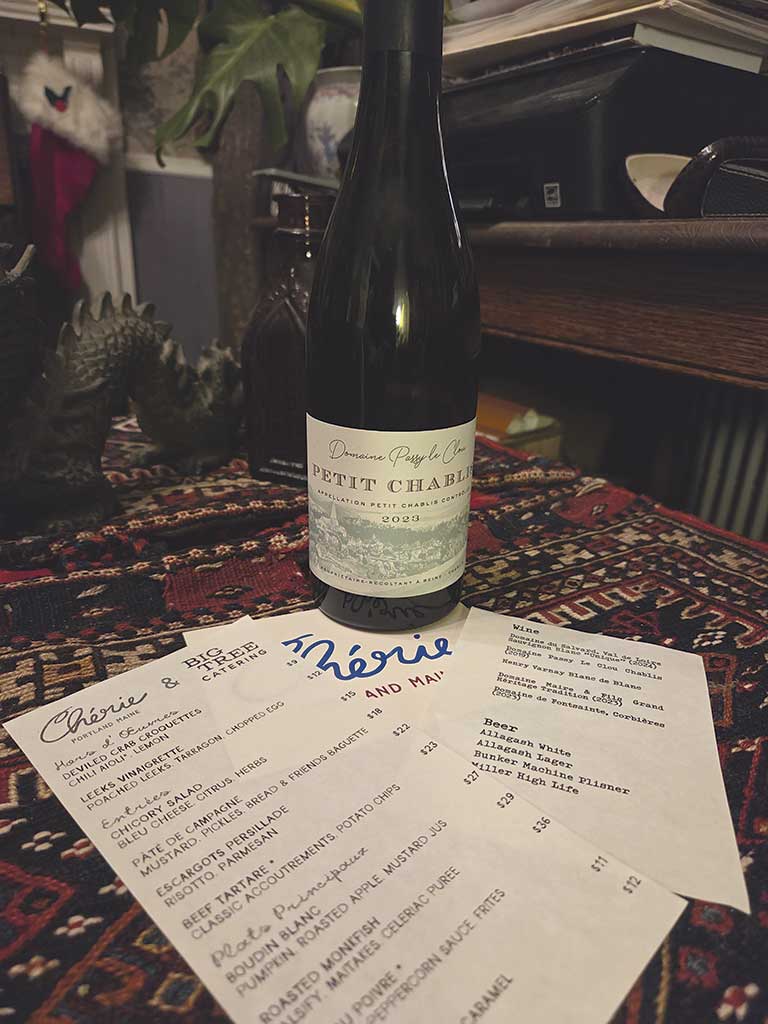 Domaine Passy le Clou
PETIT CHABLI
APPELLATION PETIT CHABLIS CONTRÔ
2023
PROPRIÉTAIRE-RÉCOLTANT À BEINE
Chérie
PORTLAND MAINE
&
BIG TREE
CATERING
Hors d'Œuvres
DEVILED CRAB CROQUETTES $9
CHILI AIOLI*, LEMON
LEEKS VINAIGRETTE $12
POACHED LEEKS, TARRAGON, CHOPPED EGG
Entrées
CHICORY SALAD $15
BLEU CHEESE, CITRUS, HERBS
PÂTE DE CAMPAGNE $18
MUSTARD, PICKLES, BREAD & FRIENDS BAGUETTE
ESCARGOTS PERSILLADE $22
RISOTTO, PARMESAN
BEEF TARTARE * $23
CLASSIC ACCOUTREMENTS, POTATO CHIPS
Plats Principaux
BOUDIN BLANC $27
PUMPKIN, ROASTED APPLE, MUSTARD JUS
ROASTED MONKFISH $29
ALSIFY, MAITAKES, CELERIAC PUREE
U POIVRE * $36
PEPPERCORN SAUCE FRITES
$11
CARAMEL
$12
Chérie
AND MAI
Wine
Domaine du Salvard, Val de Loire
Sauvignon Blanc «Unique» (2022)
Domaine Passy Le Clou Chablis
Henry Varnay Blanc de Blanc
Domaine Maire & Fils Grand
Héritage Tradition (2023)
Domaine de Fontsainte, Corbières
Beer
Allagash White
Allagash Lager
Bunker Machine Plisner
Miller High Life